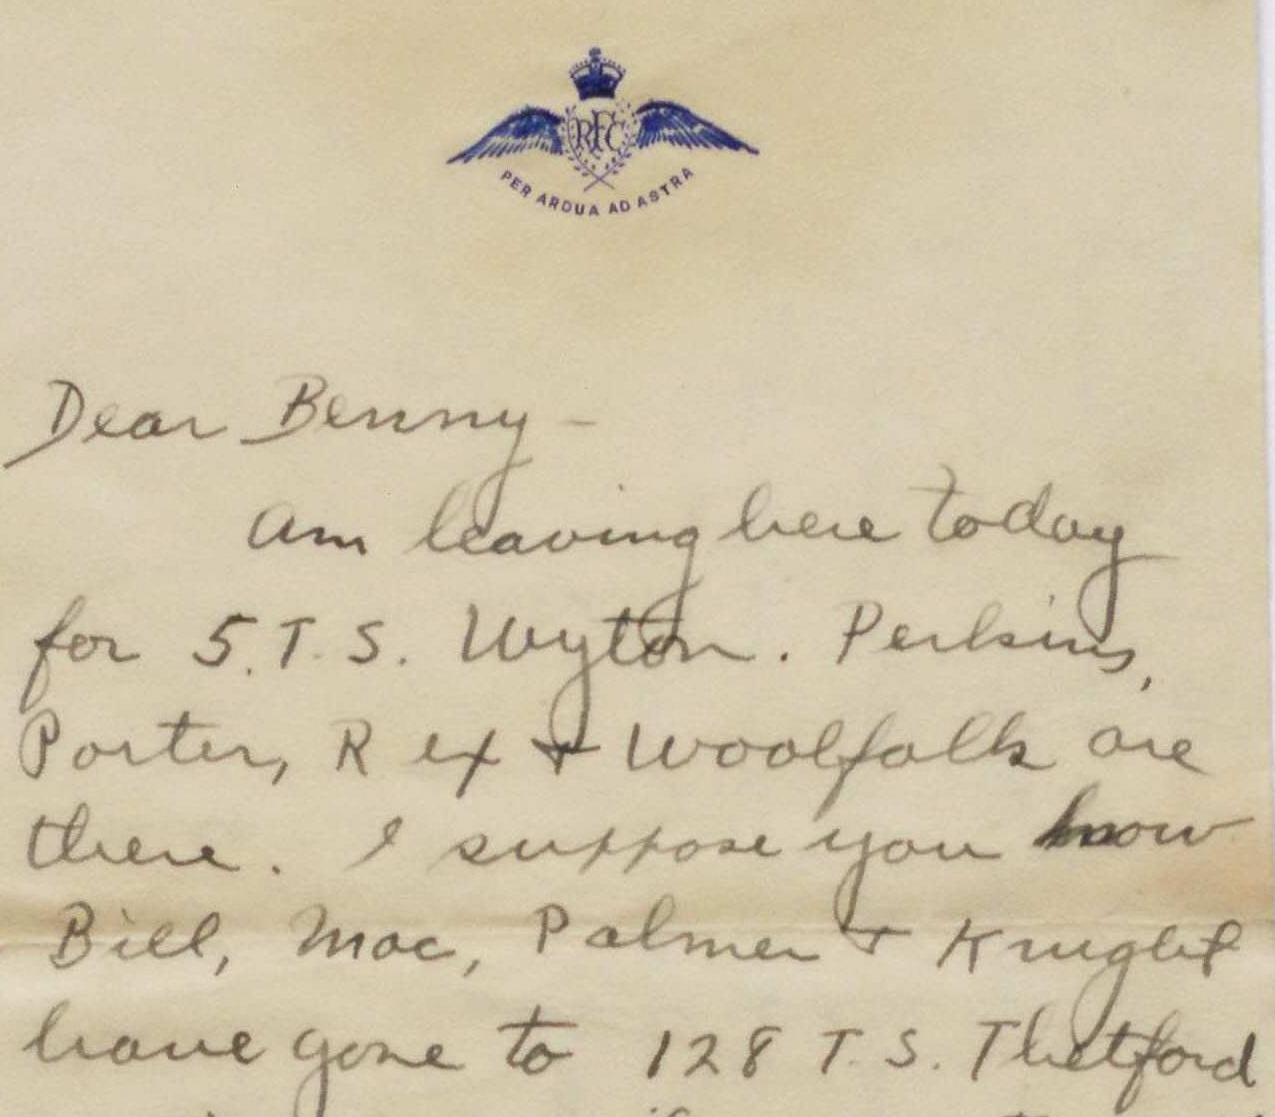 RFC
PER ARDUA AD ASTRA
Dear Benny -
am leaving here today
for 5.T.S. Wyton. Perkins,
Porter, Rex + Woolfolk are
there. I suppose you know
Bill, Mac, Palmer + Knight
have gone to 128 T.S. Thetford